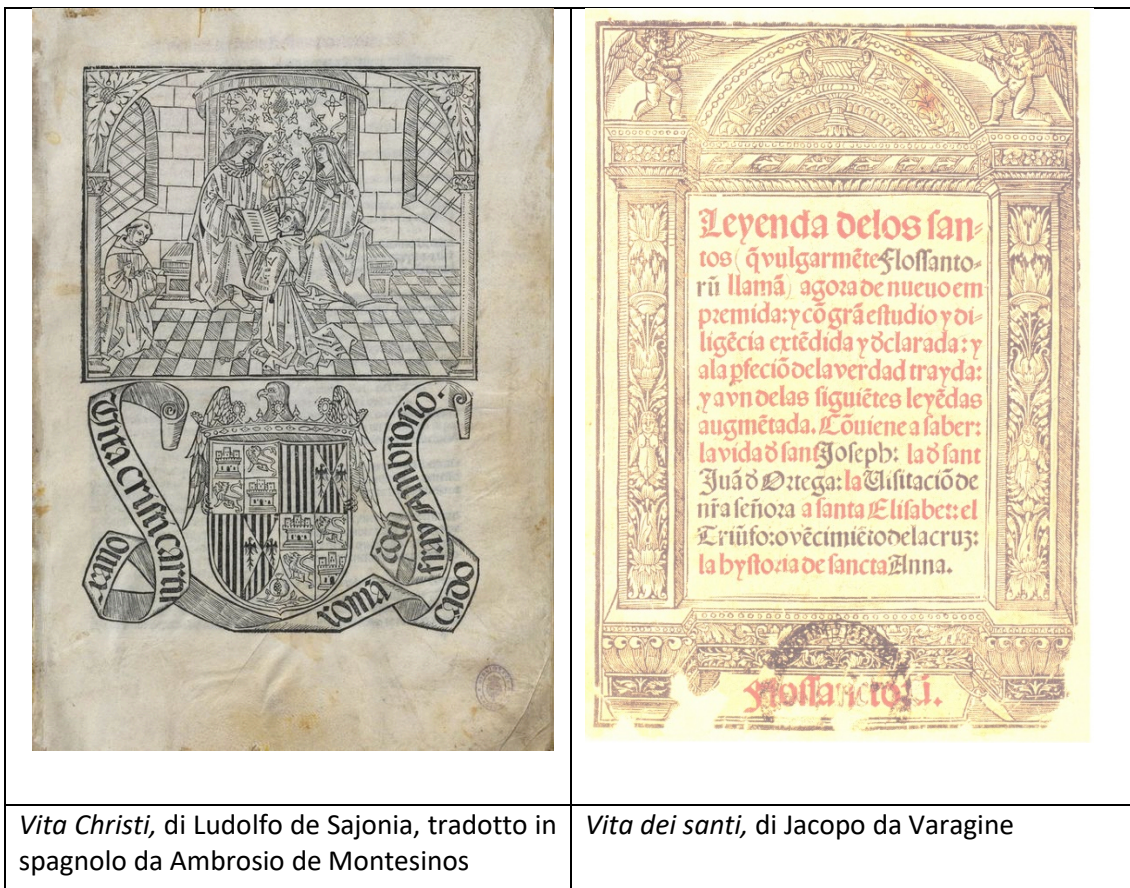 Vita cristi cartu
xano
romã
çado
por
fray Ambrosio.
Leyenda delos san-
tos (q̃ vulgarmẽte Flossanto-
rũ llamã) agora de nueuo em
premida: y cõ grã estudio y di-
ligẽcia extẽdida y d̃clarada: y
ala ꝑfeciõ dela verdad trayda:
y avn delas siguiẽtes leyẽdas
augmẽtada. Cõuiene a saber:
la vida d̃ sant Joseph: la d̃ sant
Juã d̃ Ortega: la Uisitaciõ de
nr̃a señora a santa Elisabet: el
Triũfo: o vẽcimiẽto dela cruz:
la hystoria de sancta Anna.
Vita Christi, di Ludolfo de Sajonia, tradotto in
spagnolo da Ambrosio de Montesinos
Vita dei santi, di Jacopo da Varagine